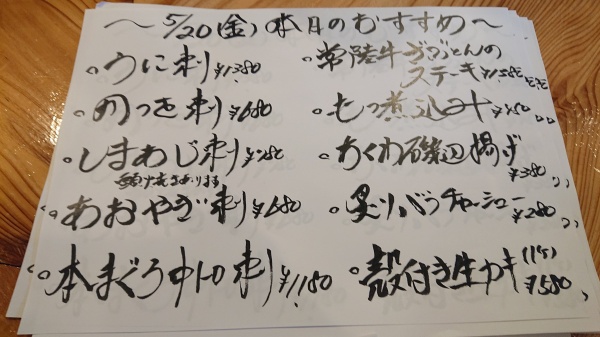 ～5/20(金)本日のおすすめ～
。うに刺¥1380
。のっき刺¥680
。しまあじ刺¥780
。あおやぎ刺¥680
。本まぐろ中トロ刺¥1,180
。常陸牛ざぶとんの
ステーキ
。もつ煮込み
。ちくわ磯辺揚げ
¥380
。炙りバラチャーシュー
¥280
。殻付き生カキ(1ケ)
¥580